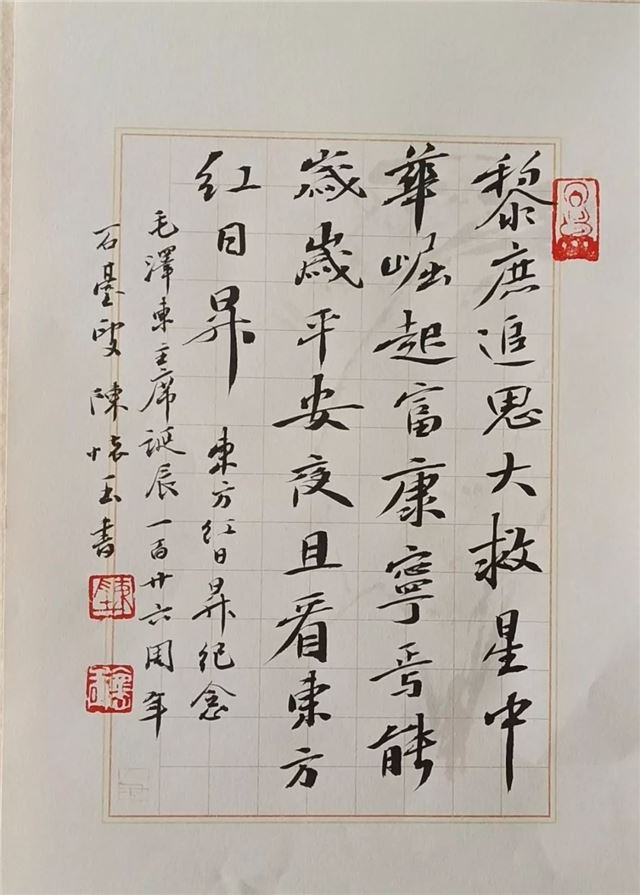 黎庶追思大救星中
華崛起富康寧焉能
歲歲平安夜且看東方
紅日昇 東方紅日昇紀念
毛澤東主席誕辰一百廿六周年
石臺叟陳懷玉書